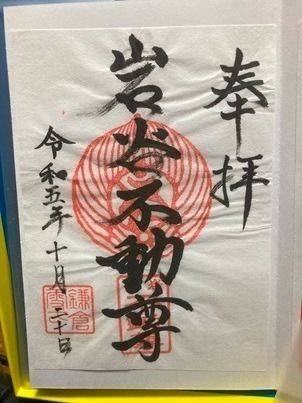 奉拝
岩谷不動尊
令和五年十月二十日
鎌倉